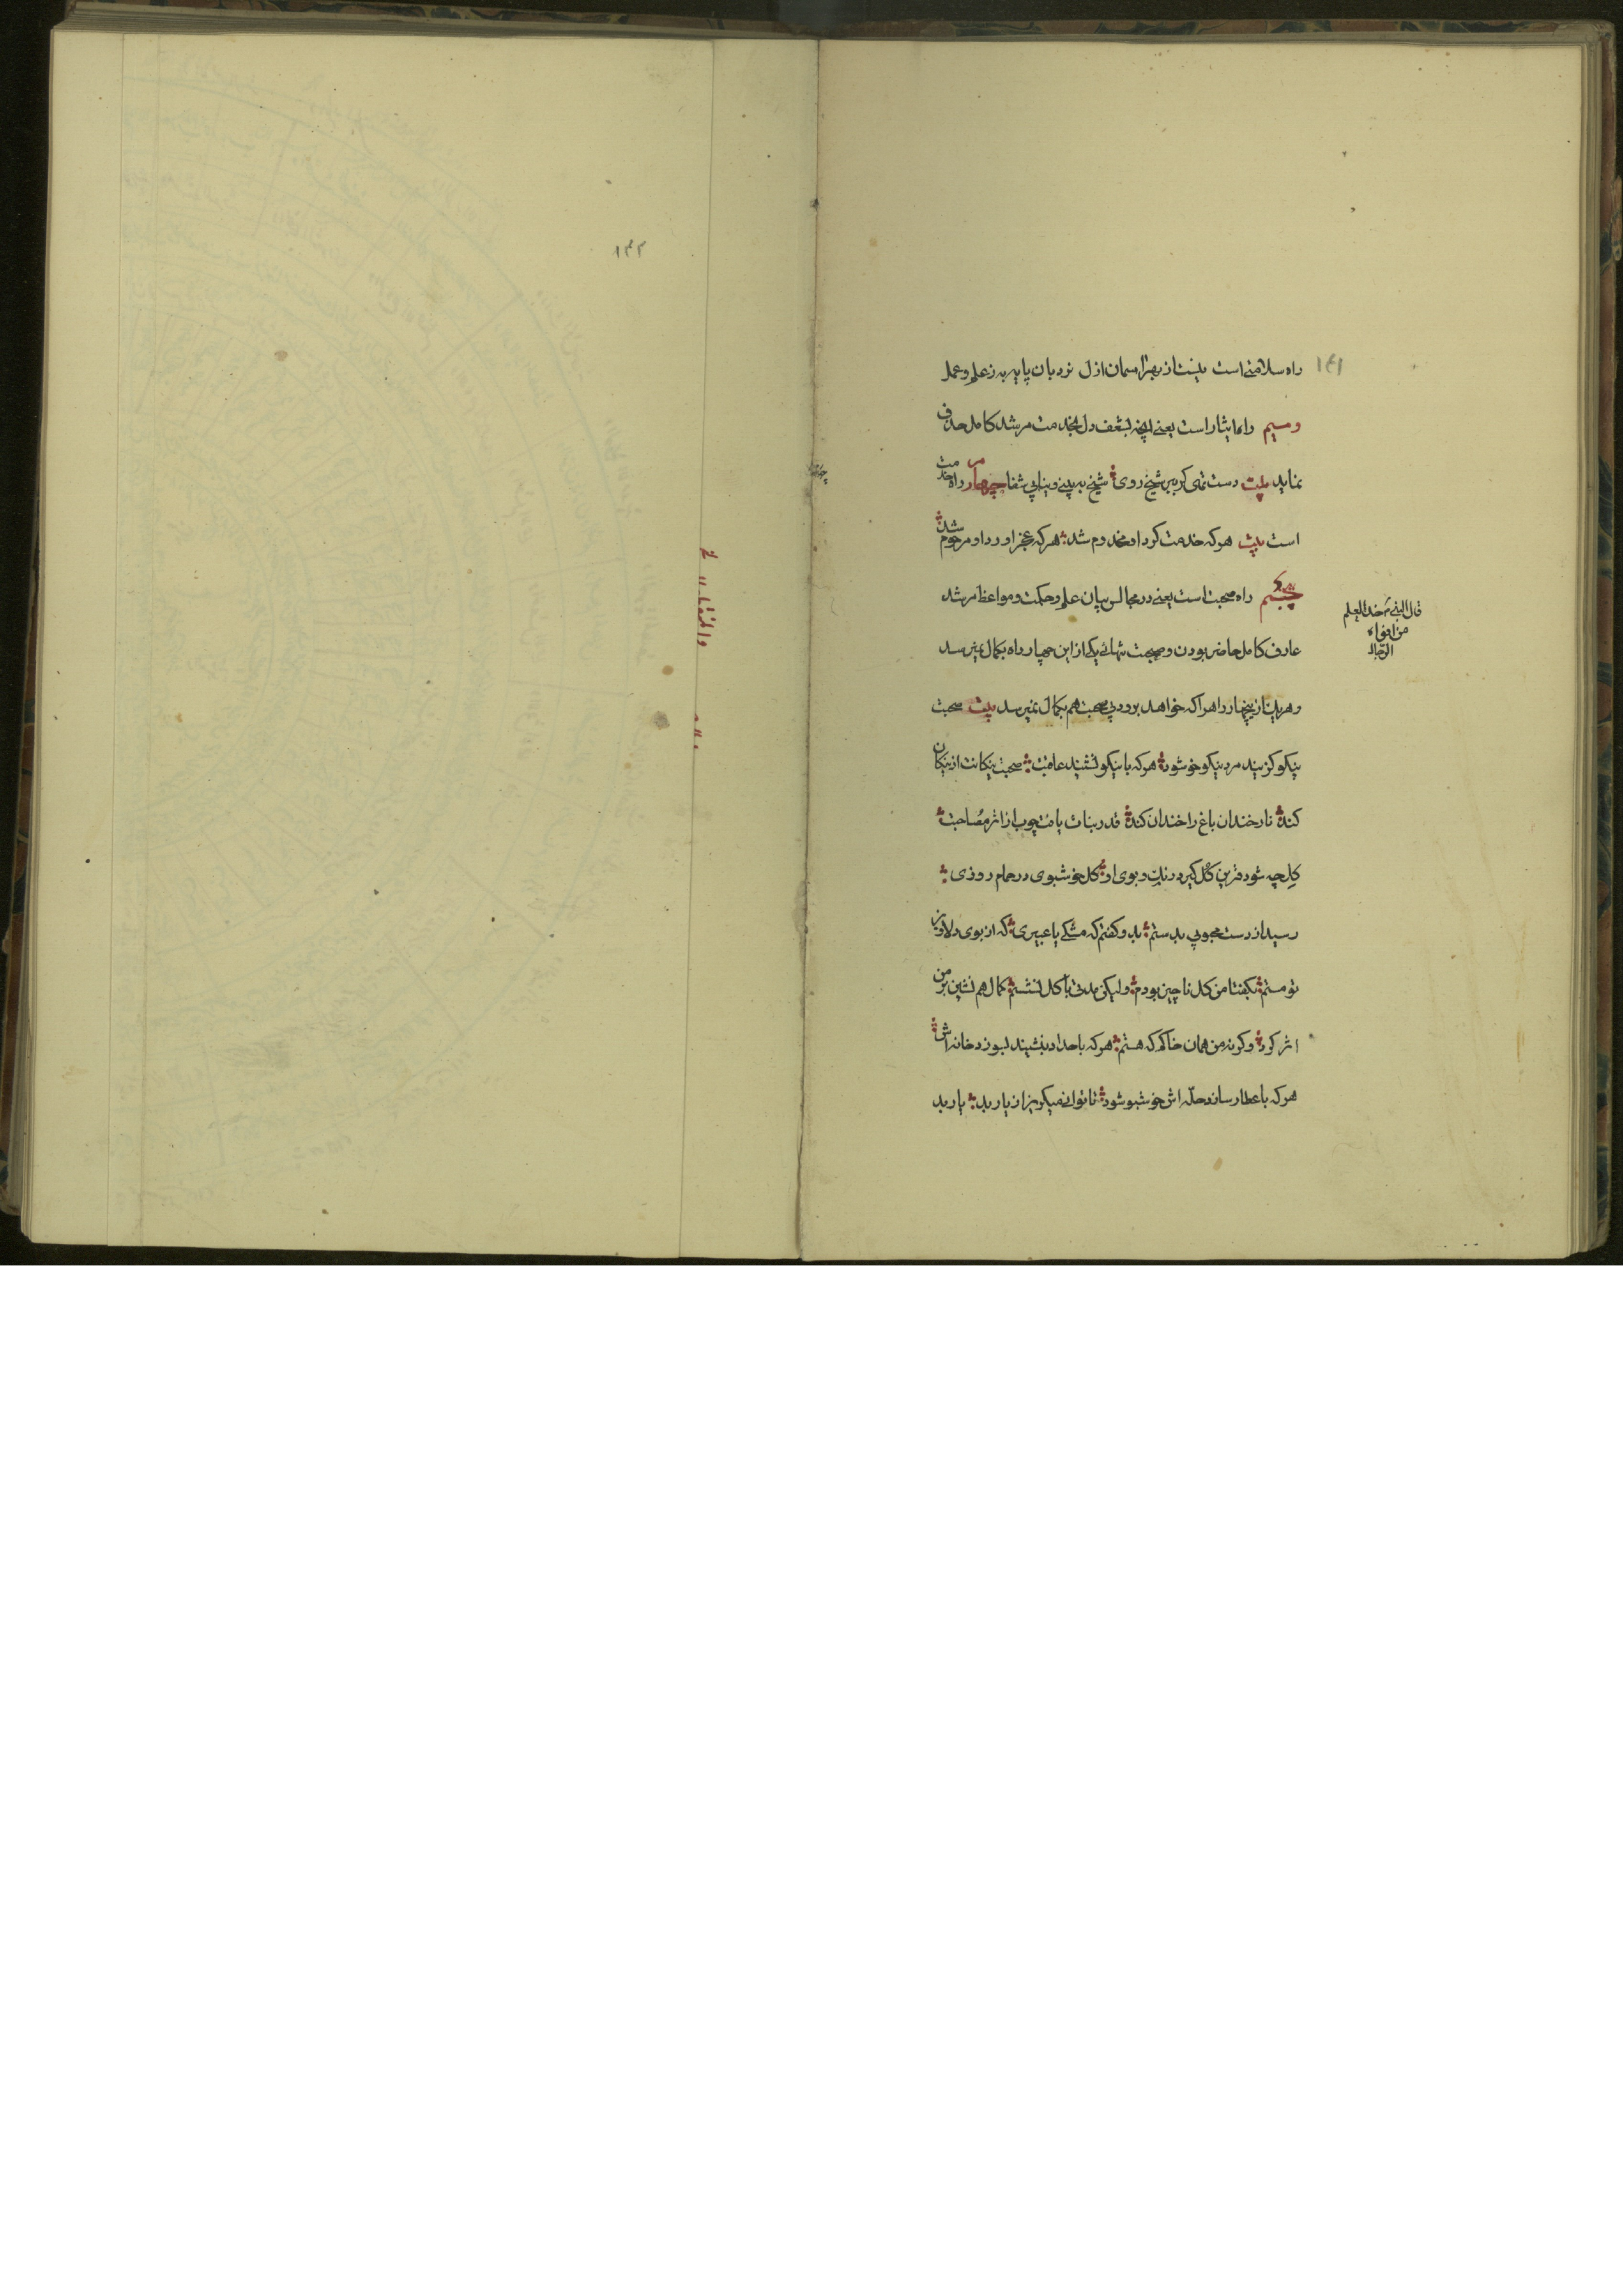 ۱۴۱
راه سلامتی است نیست از بهر آسمان ازل نردبان پایه به ز علم و عمل
و سیم راه ایثار است یعنی آنچه بشغف دل بخدمت مرشد کامل صرف
نماید بیت دست تهی کر ببر شیخ روی شیخ به بینی و نیابی شفا چهارم راه خدمت
است بیت هرکه خدمت کرد او مخدوم شد هرکه عجز اورد او مرحوم شد
پنجم راه صحبت است یعنی در مجالس بیان علم و حکمت و مواعظ مرشد
قال النبی خذ العلم
من افواه
الرجال
عارف کامل حاضر بودن و صحبت تنهائی یکی از این چهار راه بکمال میرسد
و هریک از چهار راه را که خواهد برود بی صحبت هم بکمال نمیرسد بیت صحبت
نیکو کزیند مرد نیکو خو شود هرکه با نیکو نشیند عاقبت صحبت نیکانت از نیکان
کند نار خندان باغ را خندان کند قدر نبات یافت چوب از اثر مصاحبت
کل چه شود قرین کل کیرد رنک و بوی او کل خوشبوی در حمام روزی
رسید از دست محبوبی بدستم بدو کفتم که مشکی یا عبیری که از بوی دلاویز
تو مستم بکفتا من کل ناچیز بودم ولیکن مدتی با کل نشستم کمال هم نشین بر من
اثر کرد وکرنه من همان خاکم که هستم هرکه با حداد بنشیند بسوزد خانه اش
هرکه با عطار سازد حله اش خوشبو شود تا توانی میکریز از یار بد یار بد
۱۴۲